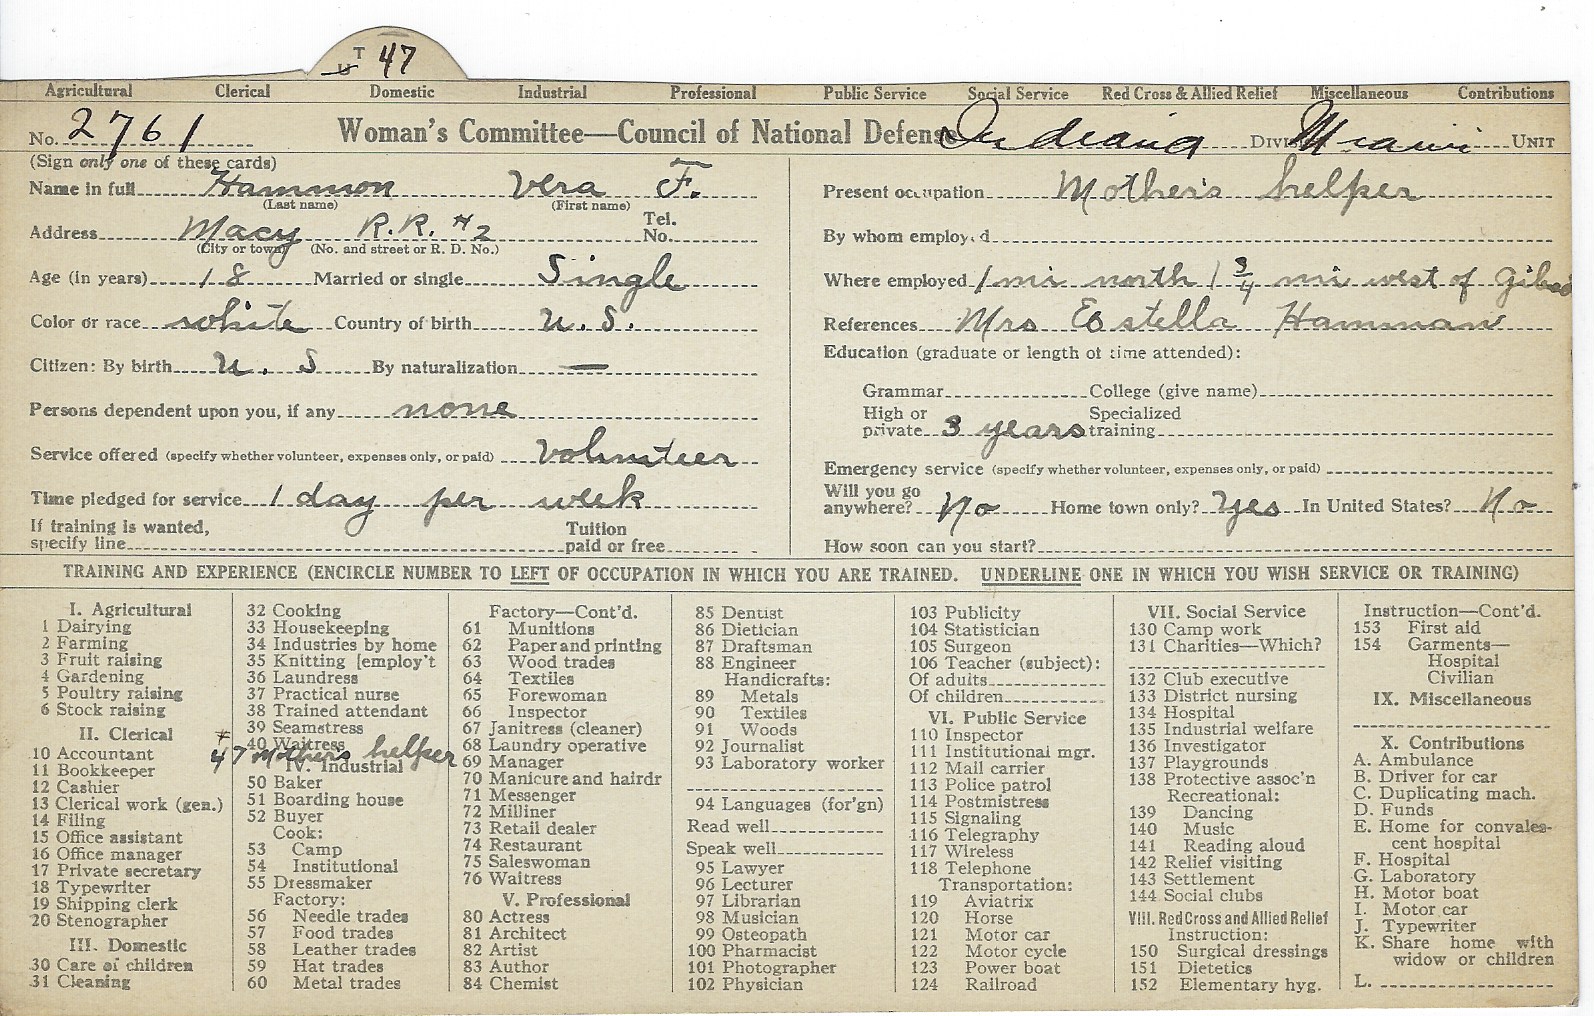 T
U 47
Agricultural Clerical Domestic Industrial Professional Public Service Social Service Red Cross & Allied Relief Miscellaneous Contributions
No. 2761 Woman's Committee—Council of National Defense Indiana Divis Miami Unit
(Sign only one of these cards)
Name in full Hammon Vera F.
(Last name) (First name)
Address Macy R.R. #2 Tel. No.
(City or town) (No. and street or R. D. No.)
Age (in years) 18 Married or single Single
Color or race white Country of birth U. S.
Citizen: By birth U. S By naturalization —
Persons dependent upon you, if any none
Service offered (specify whether volunteer, expenses only, or paid) Volunteer
Time pledged for service 1 day per week
If training is wanted, specify line Tuition paid or free
Present occupation Mother's helper
By whom employed
Where employed 1 mi north 1 3/4 mi west of Gilead
References Mrs Estella Hamman
Education (graduate or length of time attended):
Grammar College (give name)
High or private 3 years Specialized training
Emergency service (specify whether volunteer, expenses only, or paid)
Will you go anywhere? No Home town only? Yes In United States? No
How soon can you start?
TRAINING AND EXPERIENCE (ENCIRCLE NUMBER TO LEFT OF OCCUPATION IN WHICH YOU ARE TRAINED. UNDERLINE ONE IN WHICH YOU WISH SERVICE OR TRAINING)
I. Agricultural
1 Dairying
2 Farming
3 Fruit raising
4 Gardening
5 Poultry raising
6 Stock raising
II. Clerical
10 Accountant
11 Bookkeeper
12 Cashier
13 Clerical work (gen.)
14 Filing
15 Office assistant
16 Office manager
17 Private secretary
18 Typewriter
19 Shipping clerk
20 Stenographer
III. Domestic
30 Care of children
31 Cleaning
32 Cooking
33 Housekeeping
34 Industries by home
35 Knitting [employ't
36 Laundress
37 Practical nurse
38 Trained attendant
39 Seamstress
40 Waitress
47 Mothers helper
IV. Industrial
50 Baker
51 Boarding house
52 Buyer
Cook:
53 Camp
54 Institutional
55 Dressmaker
Factory:
56 Needle trades
57 Food trades
58 Leather trades
59 Hat trades
60 Metal trades
Factory—Cont'd.
61 Munitions
62 Paper and printing
63 Wood trades
64 Textiles
65 Forewoman
66 Inspector
67 Janitress (cleaner)
68 Laundry operative
69 Manager
70 Manicure and hairdr
71 Messenger
72 Milliner
73 Retail dealer
74 Restaurant
75 Saleswoman
76 Waitress
V. Professional
80 Actress
81 Architect
82 Artist
83 Author
84 Chemist
85 Dentist
86 Dietician
87 Draftsman
88 Engineer
Handicrafts:
89 Metals
90 Textiles
91 Woods
92 Journalist
93 Laboratory worker
94 Languages (for'gn)
Read well
Speak well
95 Lawyer
96 Lecturer
97 Librarian
98 Musician
99 Osteopath
100 Pharmacist
101 Photographer
102 Physician
103 Publicity
104 Statistician
105 Surgeon
106 Teacher (subject):
Of adults
Of children
VI. Public Service
110 Inspector
111 Institutional mgr.
112 Mail carrier
113 Police patrol
114 Postmistress
115 Signaling
116 Telegraphy
117 Wireless
118 Telephone
Transportation:
119 Aviatrix
120 Horse
121 Motor car
122 Motor cycle
123 Power boat
124 Railroad
VII. Social Service
130 Camp work
131 Charities—Which?
132 Club executive
133 District nursing
134 Hospital
135 Industrial welfare
136 Investigator
137 Playgrounds
138 Protective assoc'n
Recreational:
139 Dancing
140 Music
141 Reading aloud
142 Relief visiting
143 Settlement
144 Social clubs
VIII. Red Cross and Allied Relief
Instruction:
150 Surgical dressings
151 Dietetics
152 Elementary hyg.
Instruction—Cont'd.
153 First aid
154 Garments—
Hospital
Civilian
IX. Miscellaneous
X. Contributions
A. Ambulance
B. Driver for car
C. Duplicating mach.
D. Funds
E. Home for convales-
cent hospital
F. Hospital
G. Laboratory
H. Motor boat
I. Motor car
J. Typewriter
K. Share home with
widow or children
L.